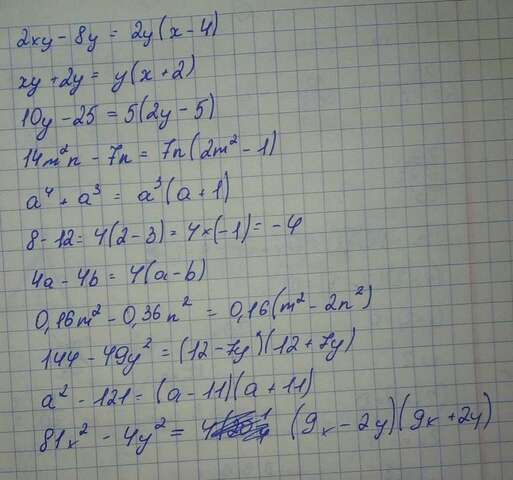 2xy - 8y = 2y(x - 4)
xy + 2y = y(x + 2)
10y - 25 = 5(2y - 5)
14m²n - 7n = 7n(2m² - 1)
a⁴ + a³ = a³(a + 1)
8 - 12 = 4(2 - 3) = 4×(-1) = -4
4a - 4b = 4(a - b)
0,16m² - 0,36n² = 0,16(m² - 2n²)
144 - 49y² = (12 - 7y)(12 + 7y)
a² - 121 = (a - 11)(a + 11)
81x² - 4y² = (9x - 2y)(9x + 2y)